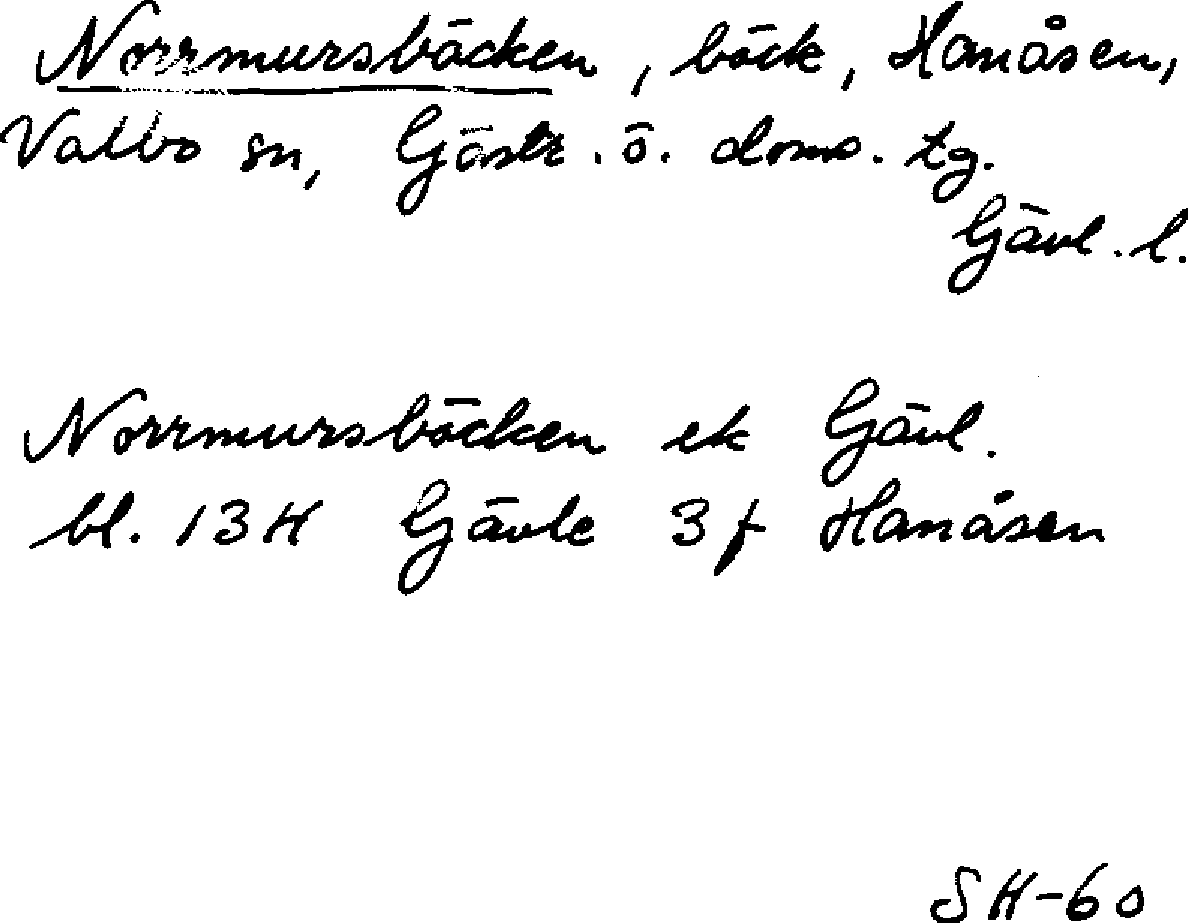 Norrmursbäcken, bäck, Hanåsen,
Valbo sn, Gästr. ö. doms. tg.
Gävl. l.
Norrmursbäcken ek Gävl.
bl. 13H Gävle 3f Hanåsen
SH-60